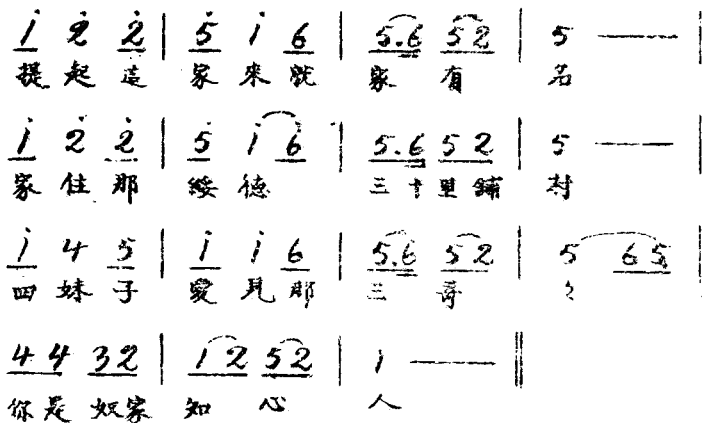 1̇ 2̇ 2̇ | 5̇ 1̇ 6 | 5.6 52 | 5 —— |
提起這 家來就 家有 名
1̇ 2̇ 2̇ | 5̇ 1̇ 6 | 5.6 52 | 5 —— |
家住那 綏德 三十里鋪 村
1̇ 4 5 | 1̇ 1̇ 6 | 5.6 52 | 5 65 |
四妹子 愛見那 三哥 々
44 32 | 12 52 | 1 —— ‖
你是奴家 知心 人